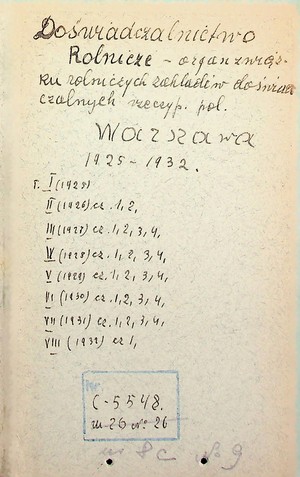 Doświadczalnictwo
Rolnicze – organ związ-
ku rolniczych zakładów doświad
czalnych rzeczyp. pol.
Warszawa
1925 - 1932.
T. I (1925)
II (1926) cz. 1, 2,
III (1927) cz. 1, 2, 3, 4,
IV (1928) cz. 1, 2, 3, 4,
V (1929) cz. 1, 2, 3, 4,
VI (1930) cz. 1, 2, 3, 4,
VII (1931) cz. 1, 2, 3, 4,
VIII (1932) cz 1,
Nr.
C-5548.
26
8c № 9